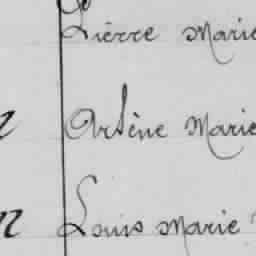 Pierre Marie
Arsène Marie
Louis Marie